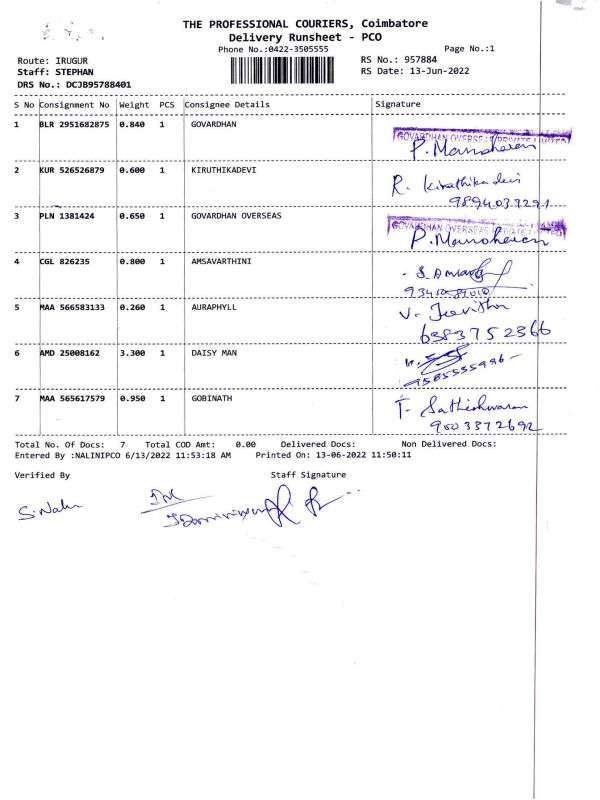 THE PROFESSIONAL COURIERS, Coimbatore
Delivery Runsheet - PCO
Phone No.:0422-3505555
Page No.:1
Route: IRUGUR
RS No.: 957884
Staff: STEPHAN
RS Date: 13-Jun-2022
DRS No.: DCJB95788401
S No Consignment No Weight PCS Consignee Details Signature
1 BLR 2951682875 0.840 1 GOVARDHAN
GOVARDHAN OVERSEAS PRIVATE LIMITED
P. Manoharan
2 KUR 526526879 0.600 1 KIRUTHIKADEVI
R. Kiruthika devi
9894037291
3 PLN 1381424 0.650 1 GOVARDHAN OVERSEAS
GOVARDHAN OVERSEAS PRIVATE LIMITED
P. Manoharan
4 CGL 826235 0.800 1 AMSAVARTHINI
5 MAA 566583133 0.260 1 AURAPHYLL
6383752366
6 AMD 25008162 3.300 1 DAISY MAN
9585555996
7 MAA 565617579 0.950 1 GOBINATH
T. Satheshwaran
9003372692
Total No. Of Docs: 7 Total COD Amt: 0.00 Delivered Docs: Non Delivered Docs:
Entered By :NALINIPCO 6/13/2022 11:53:18 AM Printed On: 13-06-2022 11:50:11
Verified By Staff Signature